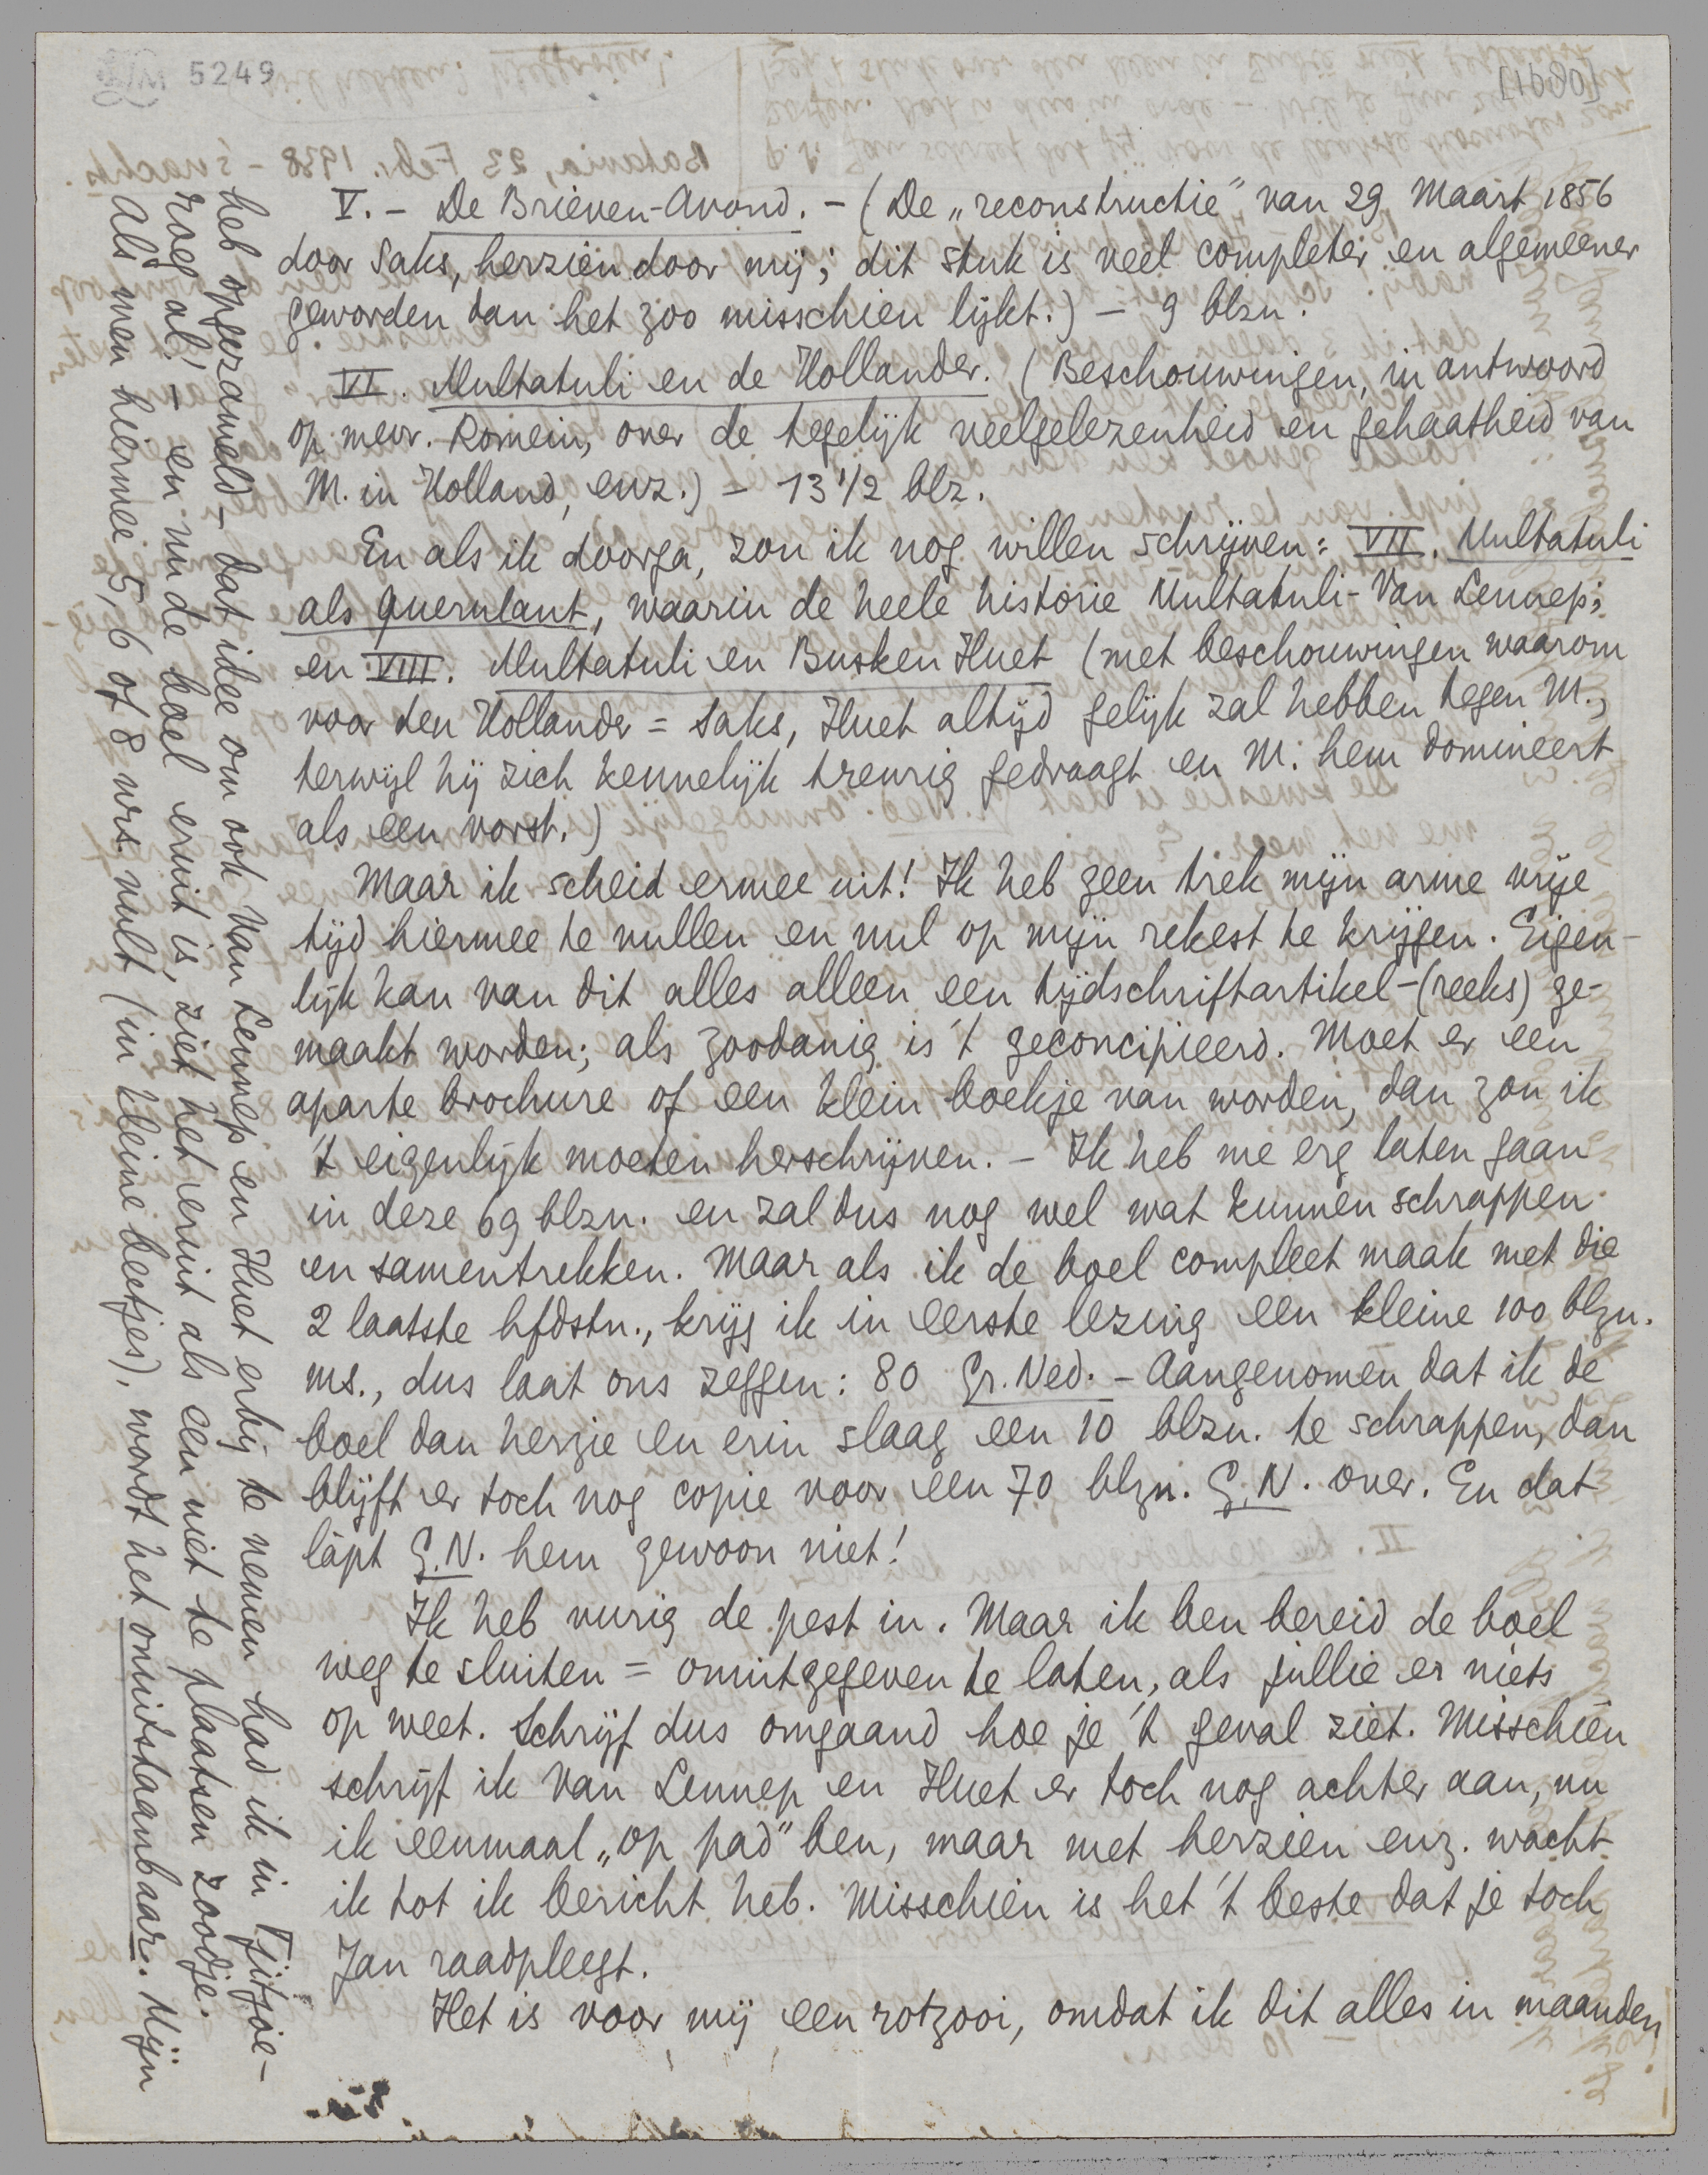 5249
[1680]
V. – De Brieven-Avond. – (De „reconstructie” van 29 Maart 1856
door Saks, herzien door mij; dit stuk is veel completer en algemeener
geworden dan het zoo misschien lijkt.) – 9 blzn.
VI. Multatuli en de Hollander. (Beschouwingen, in antwoord
op mevr. Romein, over de tegelijk veelgelezenheid en gehaatheid van
M. in Holland, enz.) – 13 1/2 blz.
En als ik doorga, zou ik nog willen schrijven: VII. Multatuli
als querulant, waarin de heele historie Multatuli-Van Lennep;
en VIII. Multatuli en Busken Huet (met beschouwingen waarom
voor den Hollander = Saks, Huet altijd gelijk zal hebben tegen M.,
terwijl hij zich kennelijk treurig gedraagt en M. hem domineert
als een vorst.)
Maar ik scheid ermee uit! Ik heb geen trek mijn arme vrije
tijd hiermee te vullen en nul op mijn rekest te krijgen. Eigen-
lijk kan van dit alles alleen een tijdschriftartikel-(reeks) ge-
maakt worden; als zoodanig is 't geconcipieerd. Moet er een
aparte brochure of een klein boekje van worden, dan zou ik
't eigenlijk moeten herschrijven. – Ik heb me erg laten gaan
in deze 69 blzn. en zal dus nog wel wat kunnen schrappen
en samentrekken. Maar als ik de boel compleet maak met die
2 laatste hfdstn., krijg ik in eerste lezing een kleine 100 blzn.
ms., dus laat ons zeggen: 80 Gr. Ned. – Aangenomen dat ik de
boel dan herzie en erin slaag een 10 blzn. te schrappen, dan
blijft er toch nog copie voor een 70 blzn. G.N. over. En dat
lapt G.N. hem gewoon niet!
Ik heb vurig de pest in. Maar ik ben bereid de boel
weg te sluiten = onuitgegeven te laten, als jullie er niets
op weet. Schrijf dus omgaand hoe je 't geval ziet. Misschien
schrijf ik Van Lennep en Huet er toch nog achter aan, nu
ik eenmaal „op pad” ben, maar met herzien enz. wacht
ik tot ik bericht heb. Misschien is het 't beste dat je toch
Jan raadpleegt.
Het is voor mij een rotzooi, omdat ik dit alles in maanden
heb opgezameld – dat idee om ook Van Lennep en Huet erbij te nemen had ik in Tjitjoe-
roeg al; – en nu de boel eruit is, ziet het eruit als een niet te plaatsen zoodje.
Als men hiermee 5, 6 of 8 nrs. vult (in kleine beetjes), wordt het onuitstaanbaar. Mijn